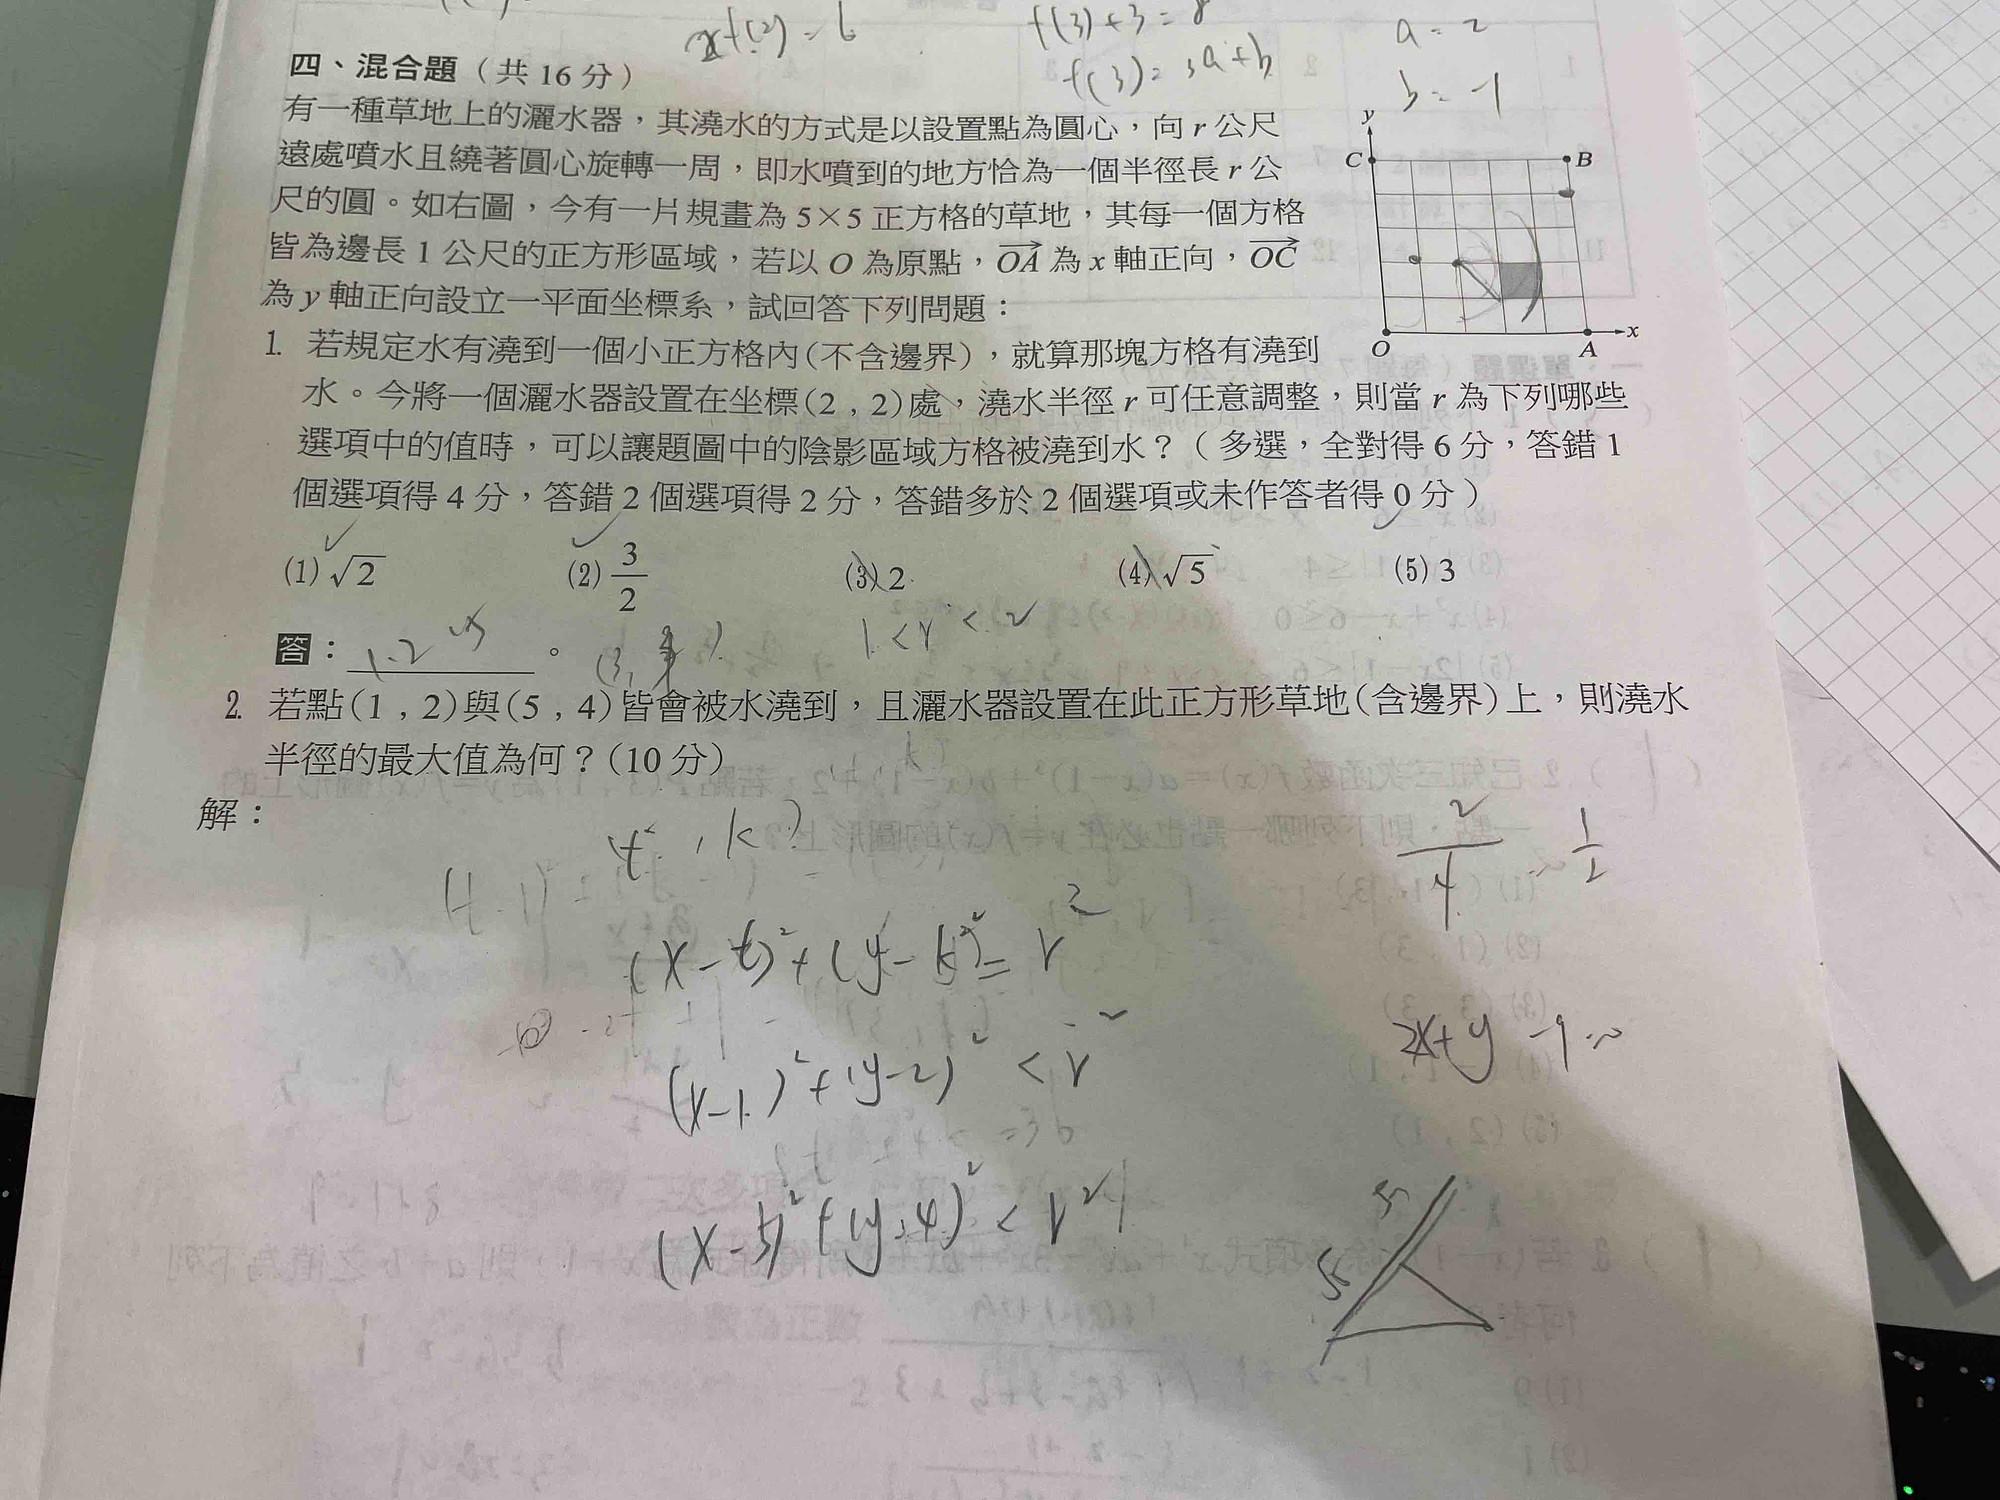 x f(2) = 6
f(3)+3 = 8
a = 2
四、混合題（共 16 分）
f(3) = 3a+b
b = -1
有一種草地上的灑水器，其澆水的方式是以設置點為圓心，向 r 公尺
遠處噴水且繞著圓心旋轉一周，即水噴到的地方恰為一個半徑長 r 公
尺的圓。如右圖，今有一片規畫為 5×5 正方格的草地，其每一個方格
皆為邊長 1 公尺的正方形區域，若以 O 為原點，$\overrightarrow{OA}$ 為 x 軸正向，$\overrightarrow{OC}$
為 y 軸正向設立一平面坐標系，試回答下列問題：
y
C B
x
O A
1. 若規定水有澆到一個小正方格內（不含邊界），就算那塊方格有澆到
水。今將一個灑水器設置在坐標(2 , 2)處，澆水半徑 r 可任意調整，則當 r 為下列哪些
選項中的值時，可以讓題圖中的陰影區域方格被澆到水？（多選，全對得 6 分，答錯 1
個選項得 4 分，答錯 2 個選項得 2 分，答錯多於 2 個選項或未作答者得 0 分）
(1) √2 (2) 3/2 (3) 2 (4) √5 (5) 3
答：1.2 。
1 < r < 2
2. 若點(1 , 2)與(5 , 4)皆會被水澆到，且灑水器設置在此正方形草地(含邊界)上，則澆水
半徑的最大值為何？(10 分)
解：
t , k
2/4 1/2
(x-t)²+(y-k)² = r²
2x+y-9=0
(x-1)²+(y-2)² < r²
(x-5)²+(y-4)² < r²